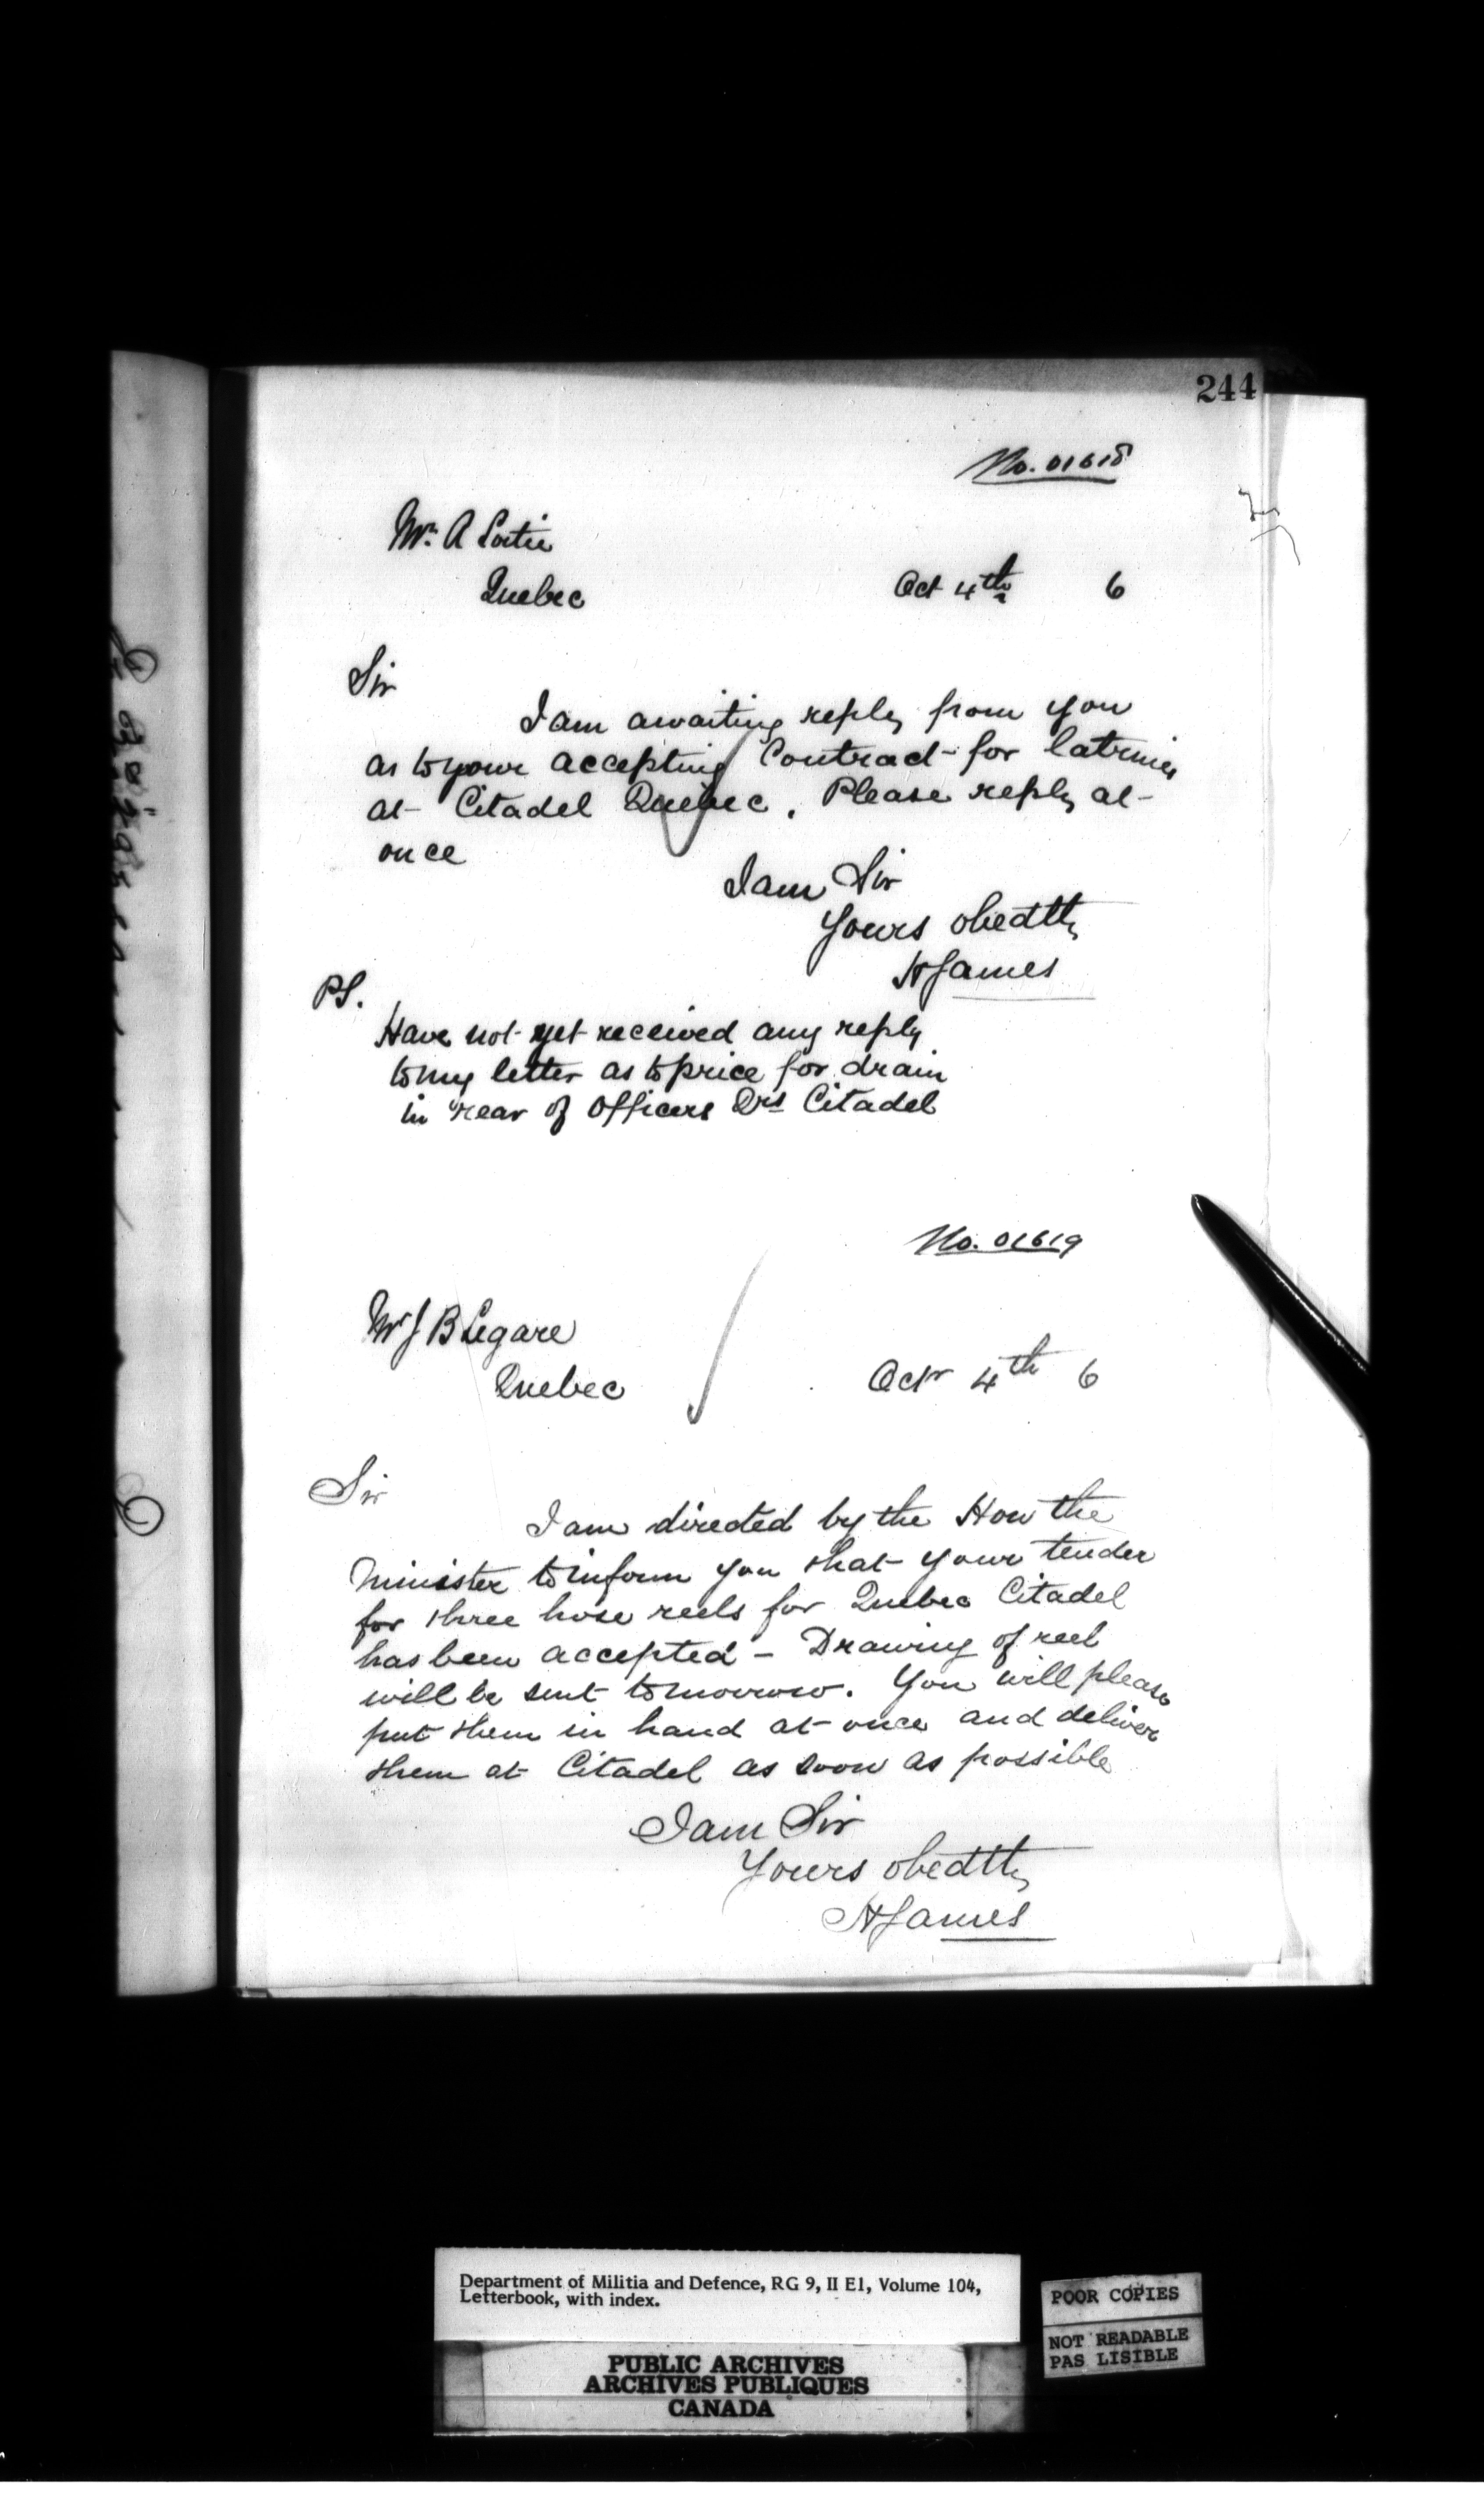 244
No. 01618
Mr. A Lortie
Quebec Oct 4th 6
Sir
I am awaiting reply from you
as to your accepting Contract for latrines
at Citadel Quebec. Please reply at
once
I am Sir
Yours obedtly
H James
PS.
Have not yet received any reply
to my letter as to price for drain
in rear of Officers Qrs Citadel
No. 01619
Mr J B Legare
Quebec Octr 4th 6
Sir
I am directed by the Hon the
Minister to inform you that your tender
for three hose reels for Quebec Citadel
has been accepted - Drawing of reel
will be sent tomorrow. You will please
put them in hand at once and deliver
them at Citadel as soon as possible
I am Sir
Yours obedtly
H James
Department of Militia and Defence, RG 9, II E1, Volume 104,
Letterbook, with index.
PUBLIC ARCHIVES
ARCHIVES PUBLIQUES
CANADA
POOR COPIES
NOT READABLE
PAS LISIBLE